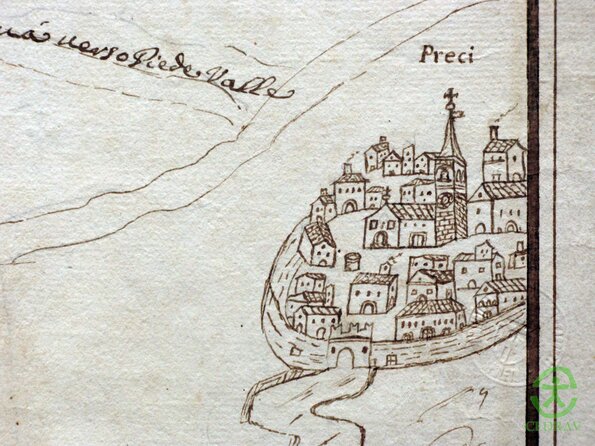 uà verso Piede Valle
Preci
CEDRAV